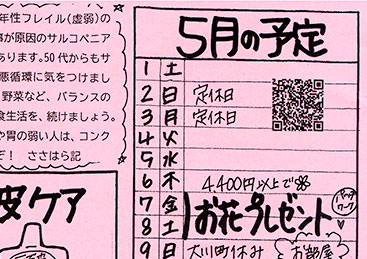 年性フレイル(虚弱)の
事が原因のサルコペニア
あります。50代からもサ
悪循環に気をつけまし
野菜など、バランスの
食生活を、続けましょう。
や胃の弱い人は、コンク
ぞ! ささはら記
皮ケア
5月の予定
1 土
2 日 定休日
3 月 定休日
4 火
5 水
6 木 4,400円以上で
7 金 お花プレゼント
8 土
9 日 大川町休み お部屋